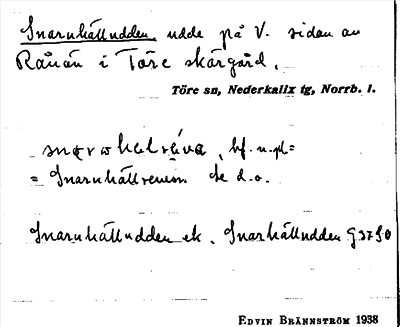 Snarnhälludden, udde på V. sidan av
Rånån i Töre skärgård.
Töre sn, Nederkalix tg, Norrb. l.
bf. n. pl=
= Snarnhällrevena se d.o.
Snarnhälludden ek. Snarhälludden G 3730
EDVIN BRÄNNSTRÖM 1938